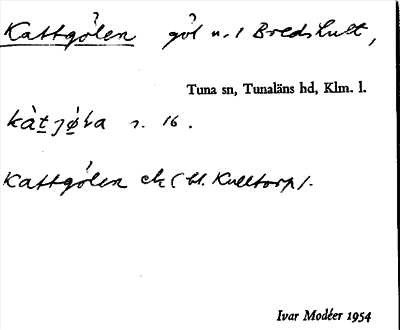 Kattgölen göl n. 1 Bredshult,
Tuna sn, Tunaläns hd, Klm. l.
kàt̲jø̲̀la r. 16.
Kattgölen ek (bl. Kulltorp).
Ivar Modéer 1954